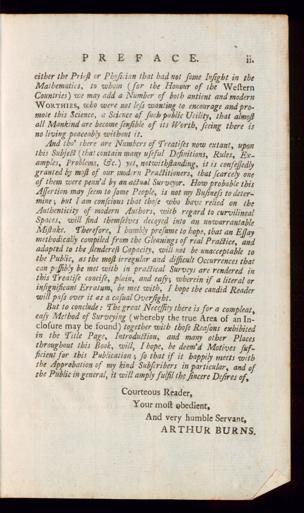 PREFACE. ii.
either the Priest or Physician that had not some Insight in the
Mathematics, to whom (for the Honour of the Western
Countries) we may add a Number of both antient and modern
WORTHIES, who were not less wanting to encourage and pro-
mote this Science, a Science of such public Utility, that almost
all Mankind are become sensible of its Worth, seeing there is
no living peaceably without it.
And tho' there are Numbers of Treatises now extant, upon
this Subject (that contain many useful Definitions, Rules, Ex-
amples, Problems, &c.) yet, notwithstanding, it is confessedly
granted by most of our modern Practitioners, that scarcely one
of them were penn'd by an actual Surveyor. How probable this
Assertion may seem to some People, is not my Business to deter-
mine; but I am conscious that those who have relied on the
Authenticity of modern Authors, with regard to curvilineal
Spaces, will find themselves decoyed into an unwarrantable
Mistake. Therefore, I humbly presume to hope, that an Essay
methodically compiled from the Gleanings of real Practice, and
adapted to the slenderest Capacity, will not be unacceptable to
the Public, as the most irregular and difficult Occurrences that
can possibly be met with in practical Surveys are rendered in
this Treatise concise, plain, and easy; wherein if a literal or
insignificant Erratum, be met with, I hope the candid Reader
will pass over it as a casual Oversight.
But to conclude: The great Necessity there is for a compleat,
easy Method of Surveying (whereby the true Area of an In-
closure may be found) together with those Reasons exhibited
in the Title Page, Introduction, and many other Places
throughout this Book, will, I hope, be deem'd Motives suf-
ficient for this Publication; so that if it happily meets with
the Approbation of my kind Subscribers in particular, and of
the Public in general, it will amply fulfil the sincere Desires of,
Courteous Reader,
Your most obedient,
And very humble Servant,
ARTHUR BURNS.